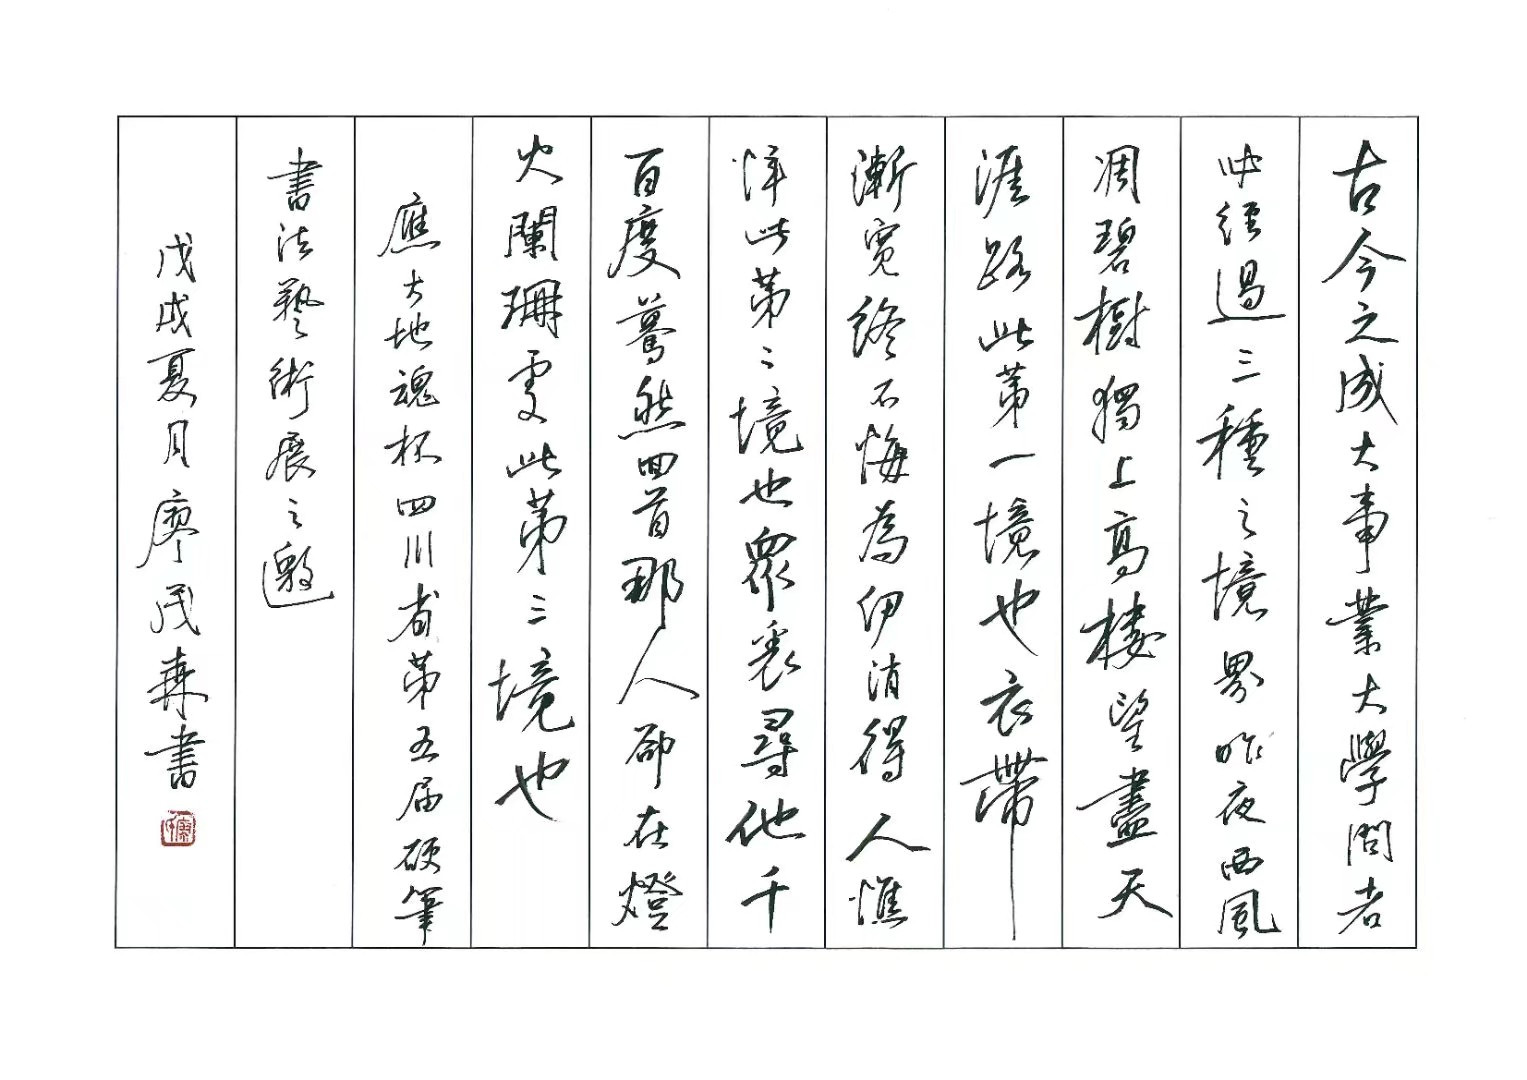 古今之成大事業大學問者
必經過三種之境界昨夜西風
凋碧樹獨上高樓望盡天
涯路此第一境也衣帶
漸寬終不悔為伊消得人憔
悴此第二境也眾裏尋他千
百度驀然回首那人卻在燈
火闌珊處此第三境也
應大地魂杯四川省第五届硬筆
書法藝術展之邀
戊戌夏月廖茂森書